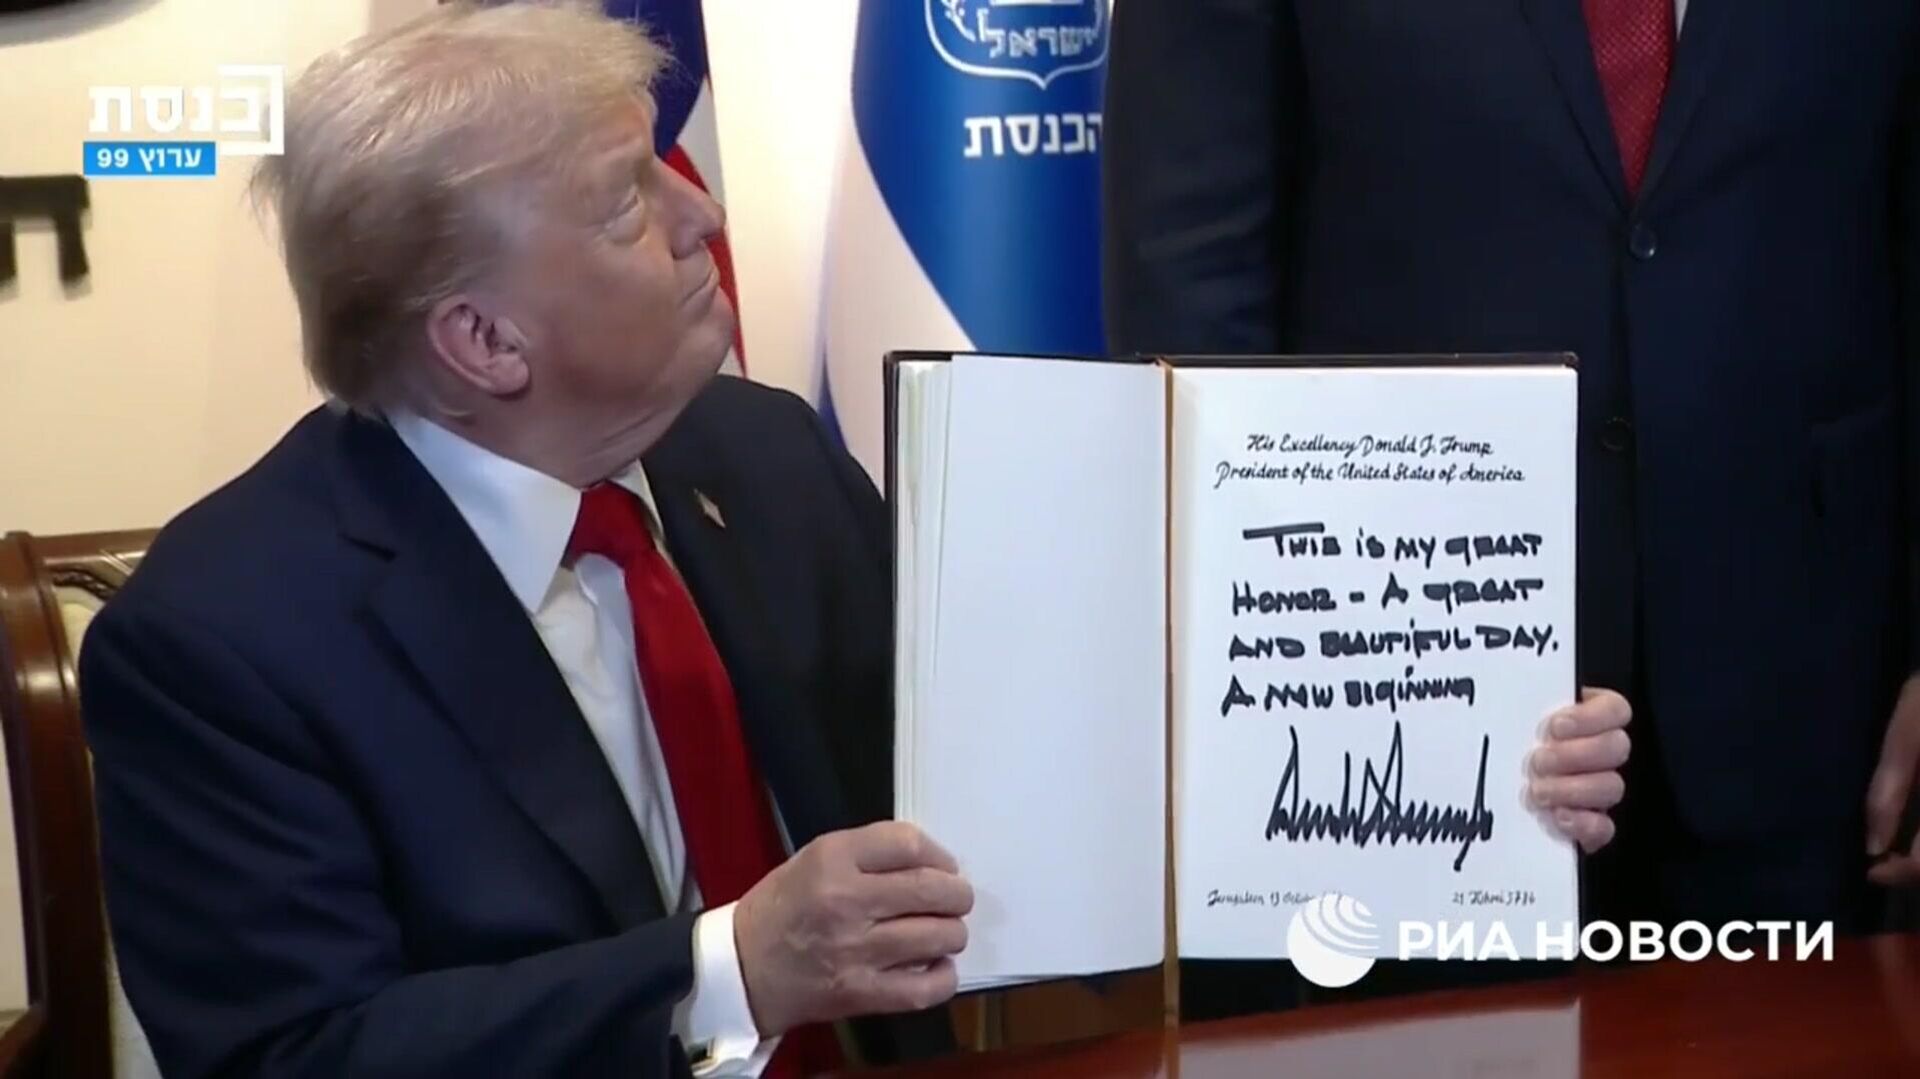 כנסת
ערוץ 99
ישראל
הכנסת
His Excellency Donald J. Trump
President of the United States of America
THIS IS MY GREAT
HONOR - A GREAT
AND BEAUTIFUL DAY.
A NEW BEGINNING
Jerusalem 13
21 Tishrei 5786
РИА НОВОСТИ